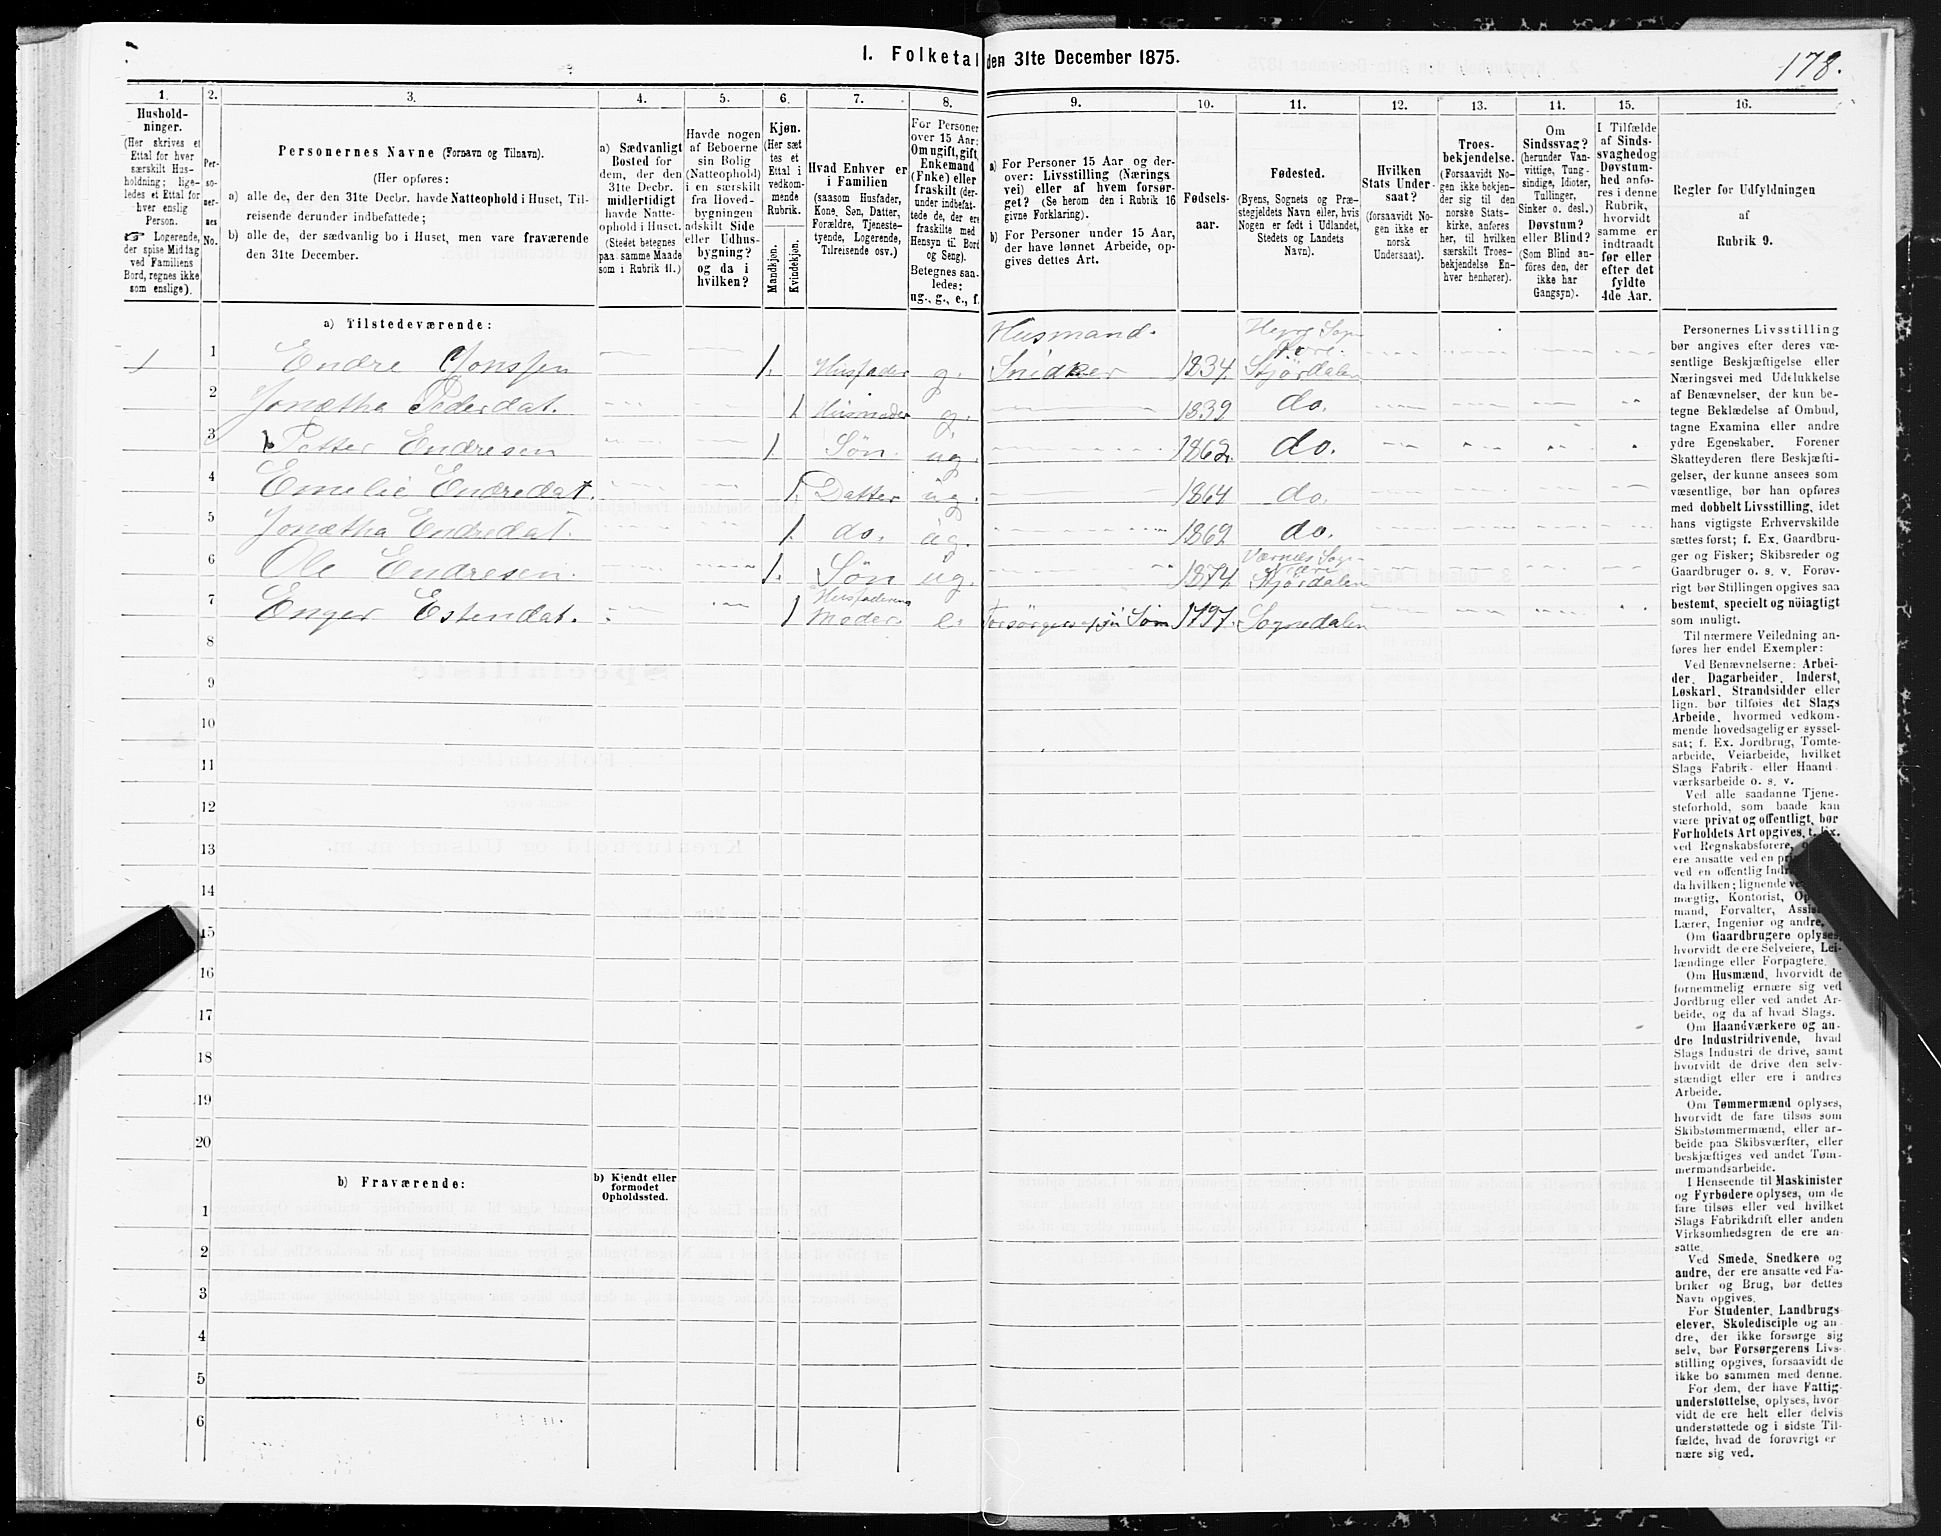 I. Folketal den 31te December 1875.
178.
1. 2. 3. 4. 5. 6. 7. 8. 9. 10. 11. 12. 13. 11. 15. 16.
Hushold-
ninger.
(Her skrives et
Ettal for hver
særskilt Hus-
holdning; lige-
ledes et Ettal for
hver enslig
Person.
☞ Logerende,
der spise Middag
ved Familiens
Bord, regnes ikke
som enslige).
Per-
so-
ner-
nes
No.
Personernes Navne (Fornavn og Tilnavn).
(Her opføres:
a) alle de, der den 31te Decbr. havde Natteophold i Huset, Til-
reisende derunder indbefattede;
b) alle de, der sædvanlig bo i Huset, men vare fraværende
den 31te December.
a) Sædvanligt
Bosted for
dem, der den
31te Decbr.
midlertidigt
havde Natte-
ophold i Huset.
(Stedet betegnes
paa samme Maade
som i Rubrik 11.)
Havde nogen
af Beboerne
sin Bolig
(Natteophold)
i en særskilt
fra Hoved-
bygningen
adskilt Side
eller Udhus-
bygning?
og da i
hvilken?
Kjøn.
(Her sæt
tes et
Ettal i
vedkom-
mende
Rubrik.
Mandkjøn.
Kvindekjøn.
Hvad Enhver er
i Familien
(saasom Husfader,
Kone, Søn, Datter,
Forældre, Tjeneste-
tyende, Logerende,
Tilreisende osv.)
For Personer
over 15 Aar:
Om ugift, gift,
Enkemand
(Enke) eller
fraskilt (der-
under indbefat-
tede de, der ere
fraskilte med
Hensyn til Bord
og Seng).
Betegnes saa-
ledes:
ug., g., e., f.
a) For Personer 15 Aar og der-
over: Livsstilling (Nærings
vei) eller af hvem forsør-
get? (Se herom den i Rubrik 16
givne Forklaring).
b) For Personer under 15 Aar,
der have lønnet Arbeide, op-
gives dettes Art.
Fødsels-
aar.
Fødested.
(Byens, Sognets og Præ-
stegjeldets Navn eller, hvis
Nogen er født i Udlandet,
Stedets og Landets
Navn).
Hvilken
Stats Under-
saat?
(forsaavidt No-
gen ikke er
norsk
Undersaat).
Troes-
bekjendelse.
(Forsaavidt No-
gen ikke bekjen-
der sig til den
norske Stats-
kirke, anføres
her, til hvilken
særskilt Troes-
bekjendelse En-
hver henhører).
Om
Sindssvag?
(herunder Van-
vittige, Tung-
sindige, Idioter,
Tullinger,
Sinker o. desl.)
Døvstum?
eller Blind?
(Som Blind an-
føres den, der
ikke har
Gangsyn).
I Tilfælde
af Sinds-
svaghed og
Døvstum-
hed anfø-
res i denne
Rubrik,
hvorvidt
samme er
indtraadt
før eller
efter det
fyldte
4de Aar.
Regler for Udfyldningen
af
Rubrik 9.
a) Tilstedeværende:
Husmand. Sogn
1 1 Endre Jonssen 1. Husfader g. Snidker 1834. Stjørdalen
2 Jonætha Pedersdat. 1 Husmoder g. 1839 do.
3 Petter Endresen 1 Søn. ug. 1862. do.
4 Emelie Endredat. 1. Datter ug. 1864 do.
5 Jonætha Endredat. 1. do. ug. 1869 do.
Værnes Sogn
6 Ole Endresen. 1. Søn ug. 1874 Stjørdalen
Husfaderens
7 Enger Estendat. 1 Moder e. Forsørges af sin Søn 1797. Sognedalen
8
9
10
11
12
13
14
15
16
17
18
19
20
b) Fraværende:
b) Kjendt eller
formodet
Opholdssted.
1
2
3
4
5
6
Personernes Livsstilling
bør angives efter deres væ-
sentlige Beskjæftigelse eller
Næringsvei med Udelukkelse
af Benævnelser, der kun be-
tegne Beklædelse af Ombud,
tagne Examina eller andre
ydre Egenskaber. Forener
Skatteyderen flere Beskjæfti-
gelser, der kunne ansees som
væsentlige, bør han opføres
med dobbelt Livsstilling, idet
hans vigtigste Erhvervskilde
sættes først; f. Ex. Gaardbru-
ger og Fisker; Skibsreder og
Gaardbruger o. s. v. Forøv-
rigt bør Stillingen opgives saa
bestemt, specielt og nöiagtigt
som muligt.
Til nærmere Veiledning an-
føres her endel Exempler:
Ved Benævnelserne: Arbei-
der, Dagarbeider, Inderst,
Løskarl, Strandsidder eller
lign. bør tilføies det Slags
Arbeide, hvormed vedkom-
mende hovedsagelig er syssel-
sat; f. Ex. Jordbrug, Tomte-
arbeide, Veiarbeide, hvilket
Slags Fabrik- eller Haand
værksarbeide o. s. v.
Ved alle saadanne Tjene-
steforhold, som baade kan
være privat og offentligt, bør
Forholdets Art opgives, t. Ex.
ved Regnskabsførere,
ere ansatte ved en
ved en offentlig
da hvilken; lignende
mægtig, Kontorist,
mand, Forvalter,
Lærer, Ingeniør og andre.
Om Gaardbrugere oplyses,
hvorvidt de ere Selveiere, Lei-
lændinge eller Forpagtere.
Om Husmænd, hvorvidt de
fornemmelig ernære sig ved
Jordbrug eller ved andet Ar-
beide, og da af hvad Slags.
Om Haandværkere og an-
dre Industridrivende, hvad
Slags Industri de drive, samt
hvorvidt de drive den selv-
stændigt eller ere i andres
Arbeide.
Om Tømmermænd oplyses,
hvorvidt de fare tilsøs som
Skibstømmermænd, eller ar-
beide paa Skibsværfter, eller
beskjæftiges ved andet Tøm-
mermandsarbeide.
I Henseende til Maskinister
og Fyrbødere oplyses, om de
fare tilsøs eller ved hvilket
Slags Fabrikdrift eller anden
Virksomhedsgren de ere an-
satte.
Ved Smede, Snedkere og
andre, der ere ansatte ved Fa-
briker og Brug, bør dettes
Navn opgives.
For Studenter, Landbrugs-
elever, Skoledisciple og an-
dre, der ikke forsørge sig
selv, bør Forsørgerens Livs-
stilling opgives, forsaavidt de
ikke bo sammen med denne.
For dem, der have Fattig-
understøttelse, oplyses, hvor-
vidt de ere helt eller delvis
understøttede og i sidste Til-
fælde, hvad de forøvrigt er
nære sig ved.